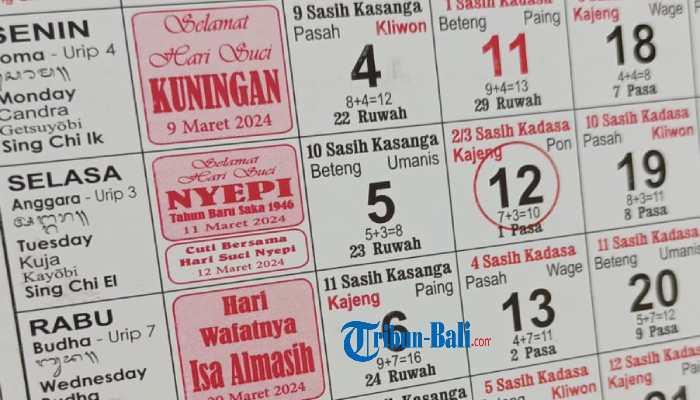 SENIN
Soma - Urip 4
Monday
Candra
Getsuyōbi
Sing Chi Ik
Selamat
Hari Suci
KUNINGAN
9 Maret 2024
9 Sasih Kasanga
Pasah Kliwon
4
8+4=12
22 Ruwah
1 Sasih Kadasa
Beteng Paing
11
9+4=13
29 Ruwah
Kajeng Wage
18
4+4=8
7 Pasa
SELASA
Anggara - Urip 3
Tuesday
Kuja
Kayōbi
Sing Chi El
Selamat
Hari Suci
NYEPI
Tahun Baru Saka 1946
11 Maret 2024
Cuti Bersama
Hari Suci Nyepi
12 Maret 2024
10 Sasih Kasanga
Beteng Umanis
5
5+3=8
23 Ruwah
2/3 Sasih Kadasa
Kajeng Pon
12
7+3=10
1 Pasa
10 Sasih Kadasa
Pasah Kliwon
19
8+3=11
8 Pasa
RABU
Budha - Urip 7
Wednesday
Budha
Hari
wafatnya
Isa Almasih
29 Maret 2024
11 Sasih Kasanga
Kajeng Paing
6
9+7=16
24 Ruwah
Tribun-Bali.com
4 Sasih Kadasa
Pasah Wage
13
4+7=11
2 Pasa
11 Sasih Kadasa
Beteng Umanis
20
5+7=12
9 Pasa
5 Sasih Kadasa
Kliwon
12 Sasih Kadasa
Kajeng Paing